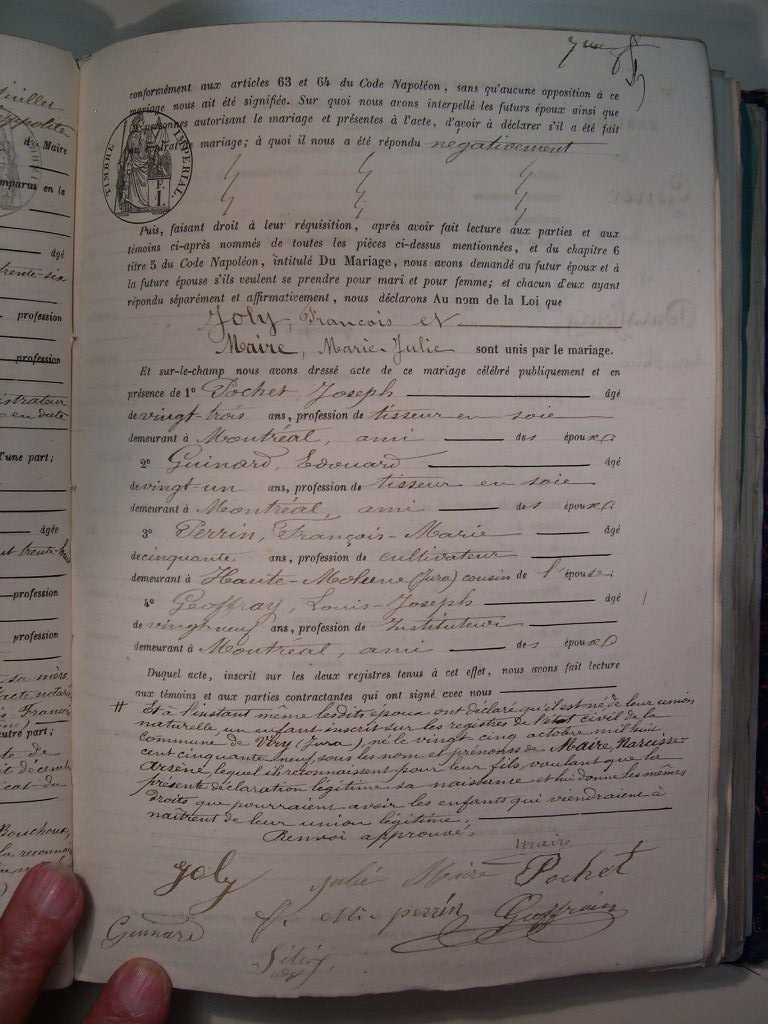 inviller
hippolite
de Maire
TIMBRE IMPÉRIAL.
F. 1.
comparus en la
âgé
trente-six
profession
profession
nistrateur
en date
l'une part;
âgée
profession
profession
sa mère,
acte notarié
François
autre part;
te de
Bouchoux,
la reconnai
conformément aux articles 63 et 64 du Code Napoléon, sans qu'aucune opposition à ce
mariage nous ait été signifiée. Sur quoi nous avons interpellé les futurs époux ainsi que
les personnes autorisant le mariage et présentes à l'acte, d'avoir à déclarer s'il a été fait
un contrat de mariage; à quoi il nous a été répondu négativement
Puis, faisant droit à leur réquisition, après avoir fait lecture aux parties et aux
témoins ci-après nommés de toutes les pièces ci-dessus mentionnées, et du chapitre 6
titre 5 du Code Napoléon, intitulé Du Mariage, nous avons demandé au futur époux et à
la future épouse s'ils veulent se prendre pour mari et pour femme; et chacun d'eux ayant
répondu séparément et affirmativement, nous déclarons Au nom de la Loi que
Joly, François et
Maire, Marie-Julie sont unis par le mariage.
Et sur-le-champ nous avons dressé acte de ce mariage célébré publiquement et en
présence de 1° Pochet, Joseph âgé
de vingt-trois ans, profession de tisseur en soie
demeurant à Montréal, ami des époux
2° Guinard, Edouard âgé
de vingt-un ans, profession de tisseur en soie
demeurant à Montréal, ami des époux
3° Perrin, François-Marie âgé
de cinquante ans, profession de cultivateur
demeurant à Haute-Molune (Jura) cousin de l'épouse;
4° Geoffray, Louis-Joseph âgé
de vingt neuf ans, profession de Instituteur
demeurant à Montréal, ami des époux
Duquel acte, inscrit sur les deux registres tenus à cet effet, nous avons fait lecture
aux témoins et aux parties contractantes qui ont signé avec nous
# Et à l'instant même lesdits époux ont déclaré qu'il est né de leur union
naturelle, un enfant inscrit sur les registres de l'état civil de la
commune de Viry (Jura), né le vingt cinq octobre mil huit
cent cinquante neuf, sous les nom et prénoms de Maire, Narcisse
Arsène, lequel ils reconnaissent pour leur fils, voulant que la
présente déclaration légitime sa naissance et lui donne les mêmes
droits que pourraient avoir les enfants qui viendraient à
naîtrent de leur union légitime.
Renvoi approuvé.
maire
Joly Julie Maire Pochet
Guinard f. Mie perrin Geoffray